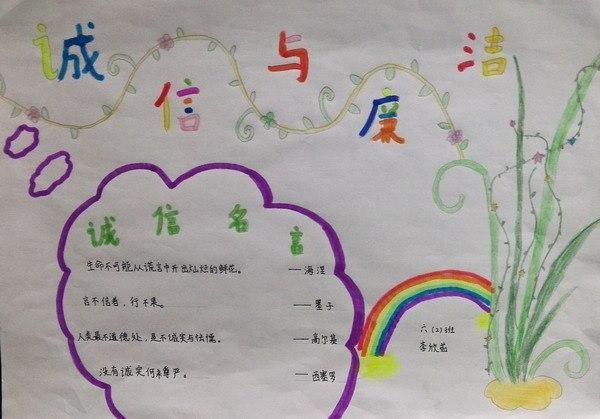 诚信与廉洁
诚信名言
生命不可能从谎言中开出灿烂的鲜花。——海涅
言不信者，行不果。——墨子
人类最不道德处，是不诚实与怯懦。——高尔基
没有诚实何来尊严。——西塞罗
六(2)班
李欣